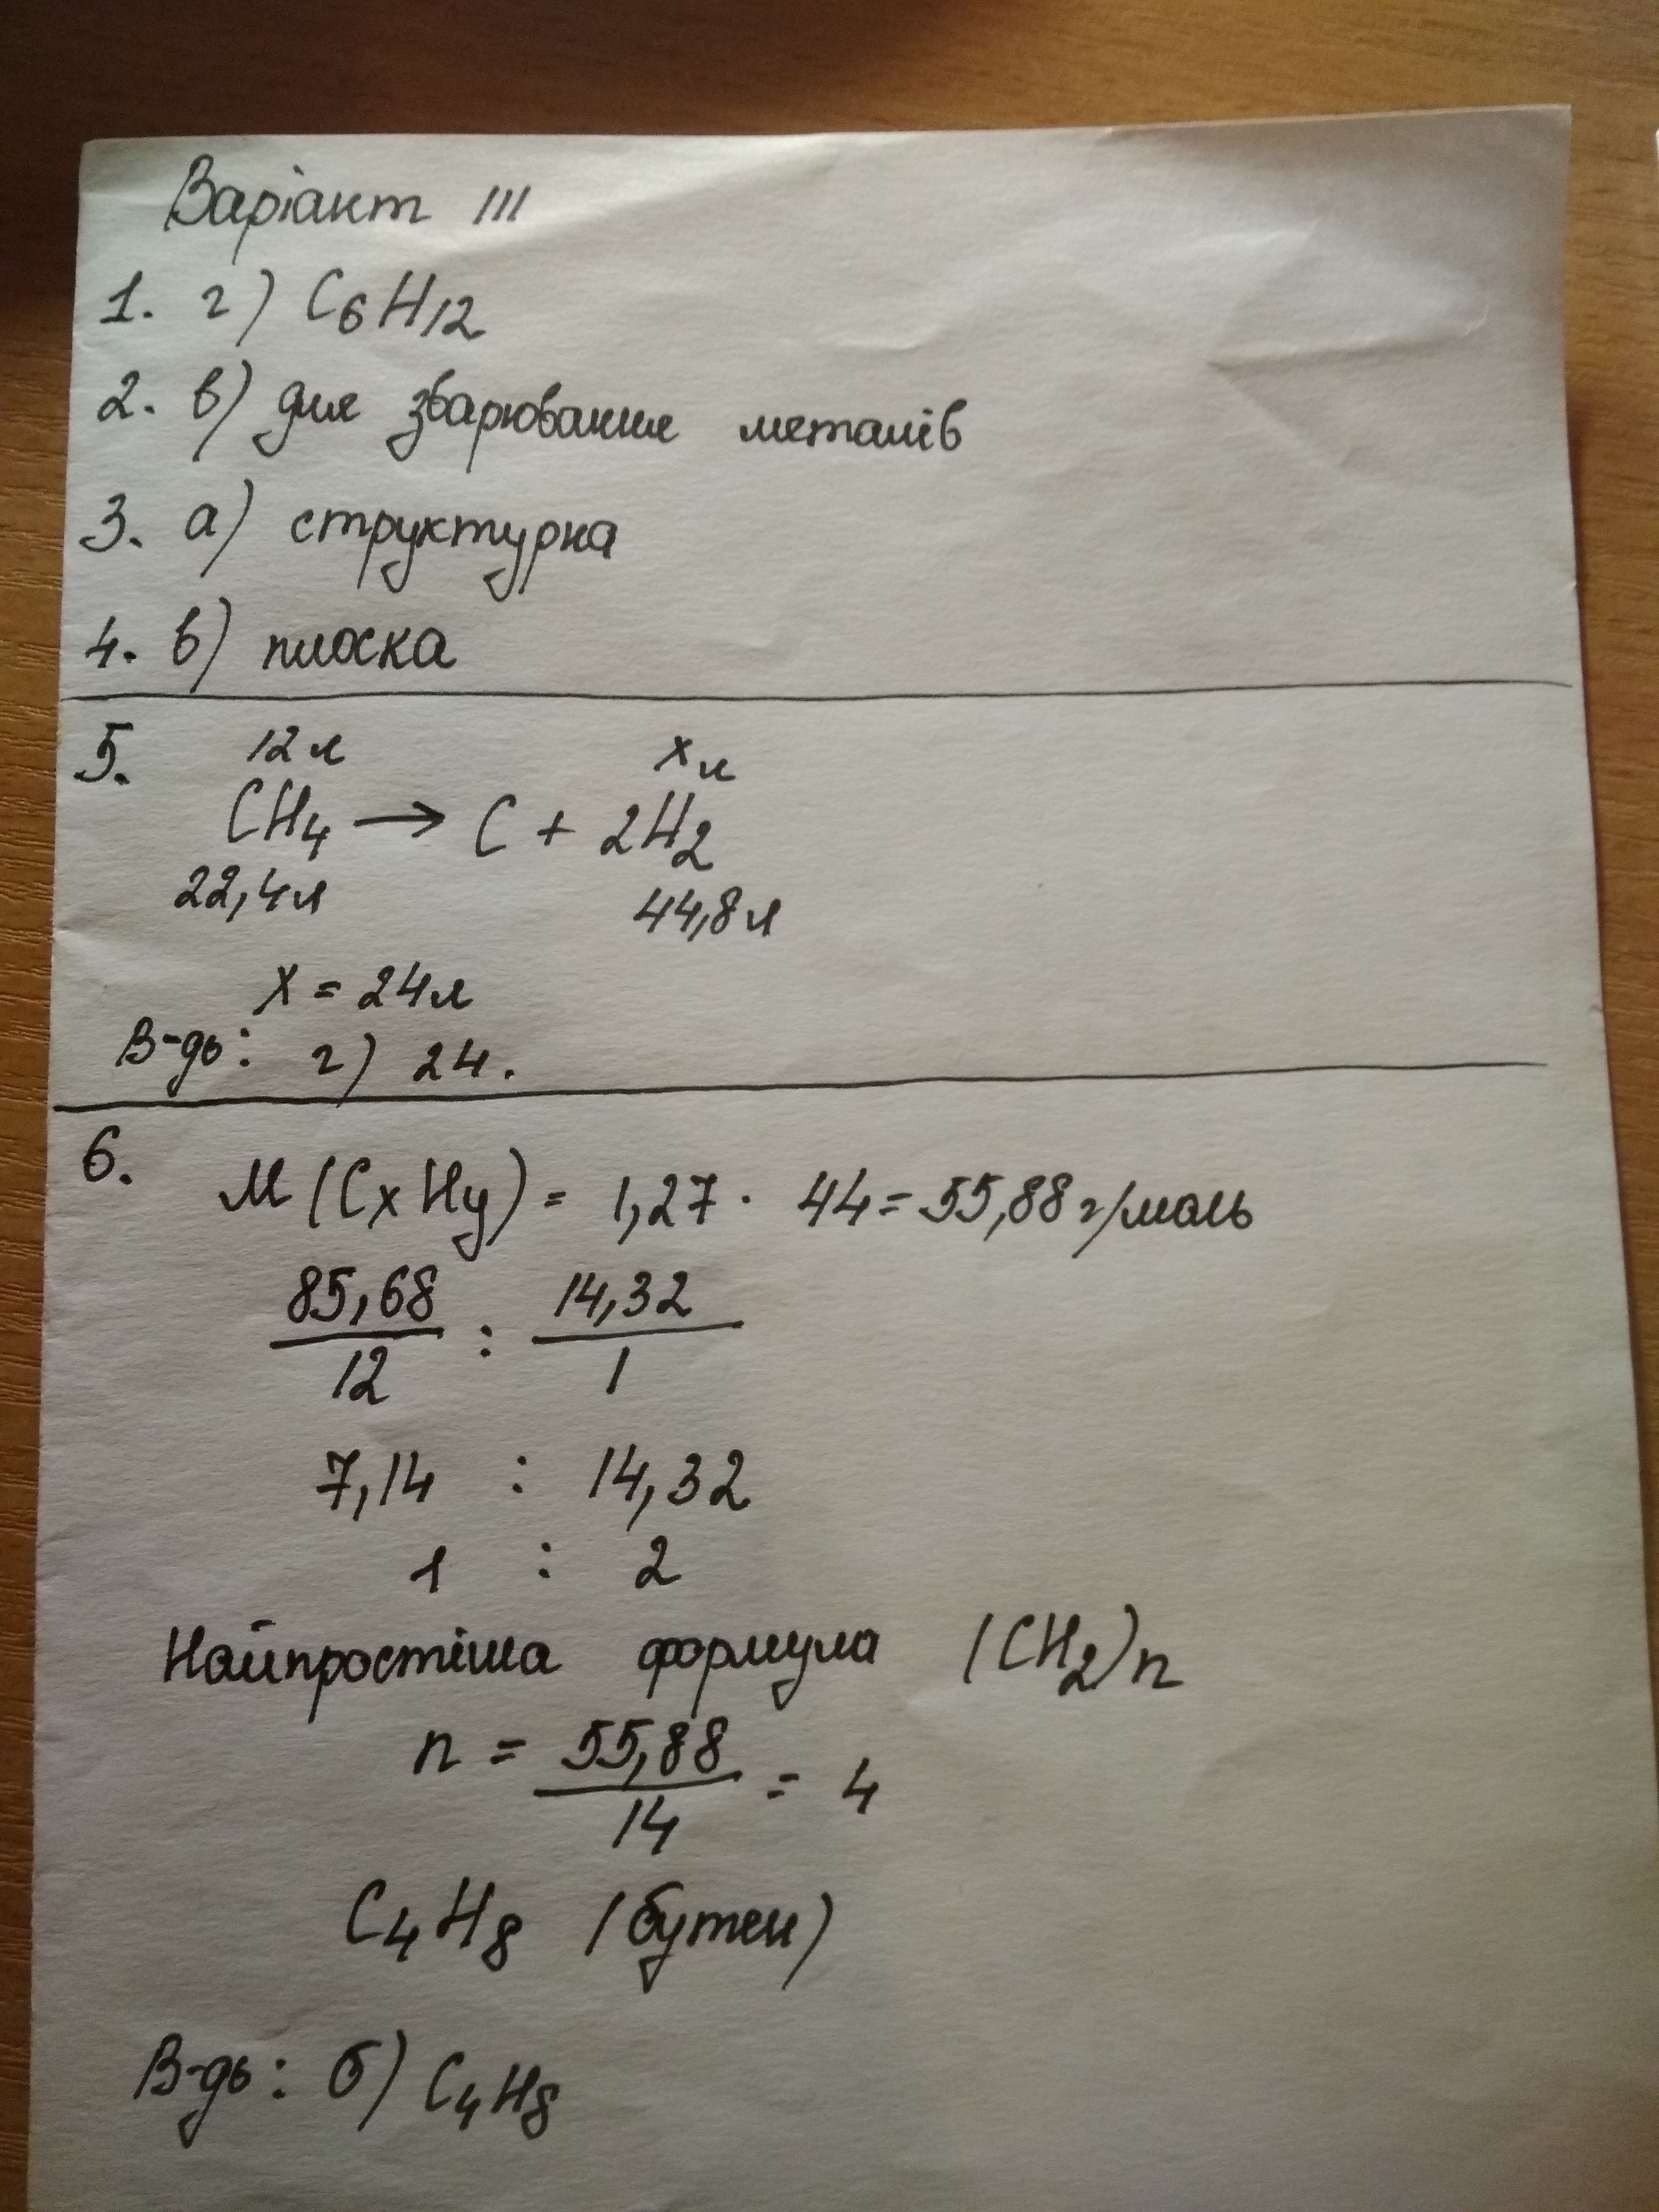 Варіант III
1. г) C6H12
2. в) для зварювання металів
3. а) структурна
4. в) плоска
5. 12 л x л
CH4 → C + 2H2
22,4 л 44,8 л
x = 24 л
В-дь: г) 24.
6. M (CxHy) = 1,27 · 44 = 55,88 г/моль
85,68 / 12 : 14,32 / 1
7,14 : 14,32
1 : 2
Найпростіша формула (CH2)n
n = 55,88 / 14 = 4
C4H8 (бутен)
В-дь: б) C4H8